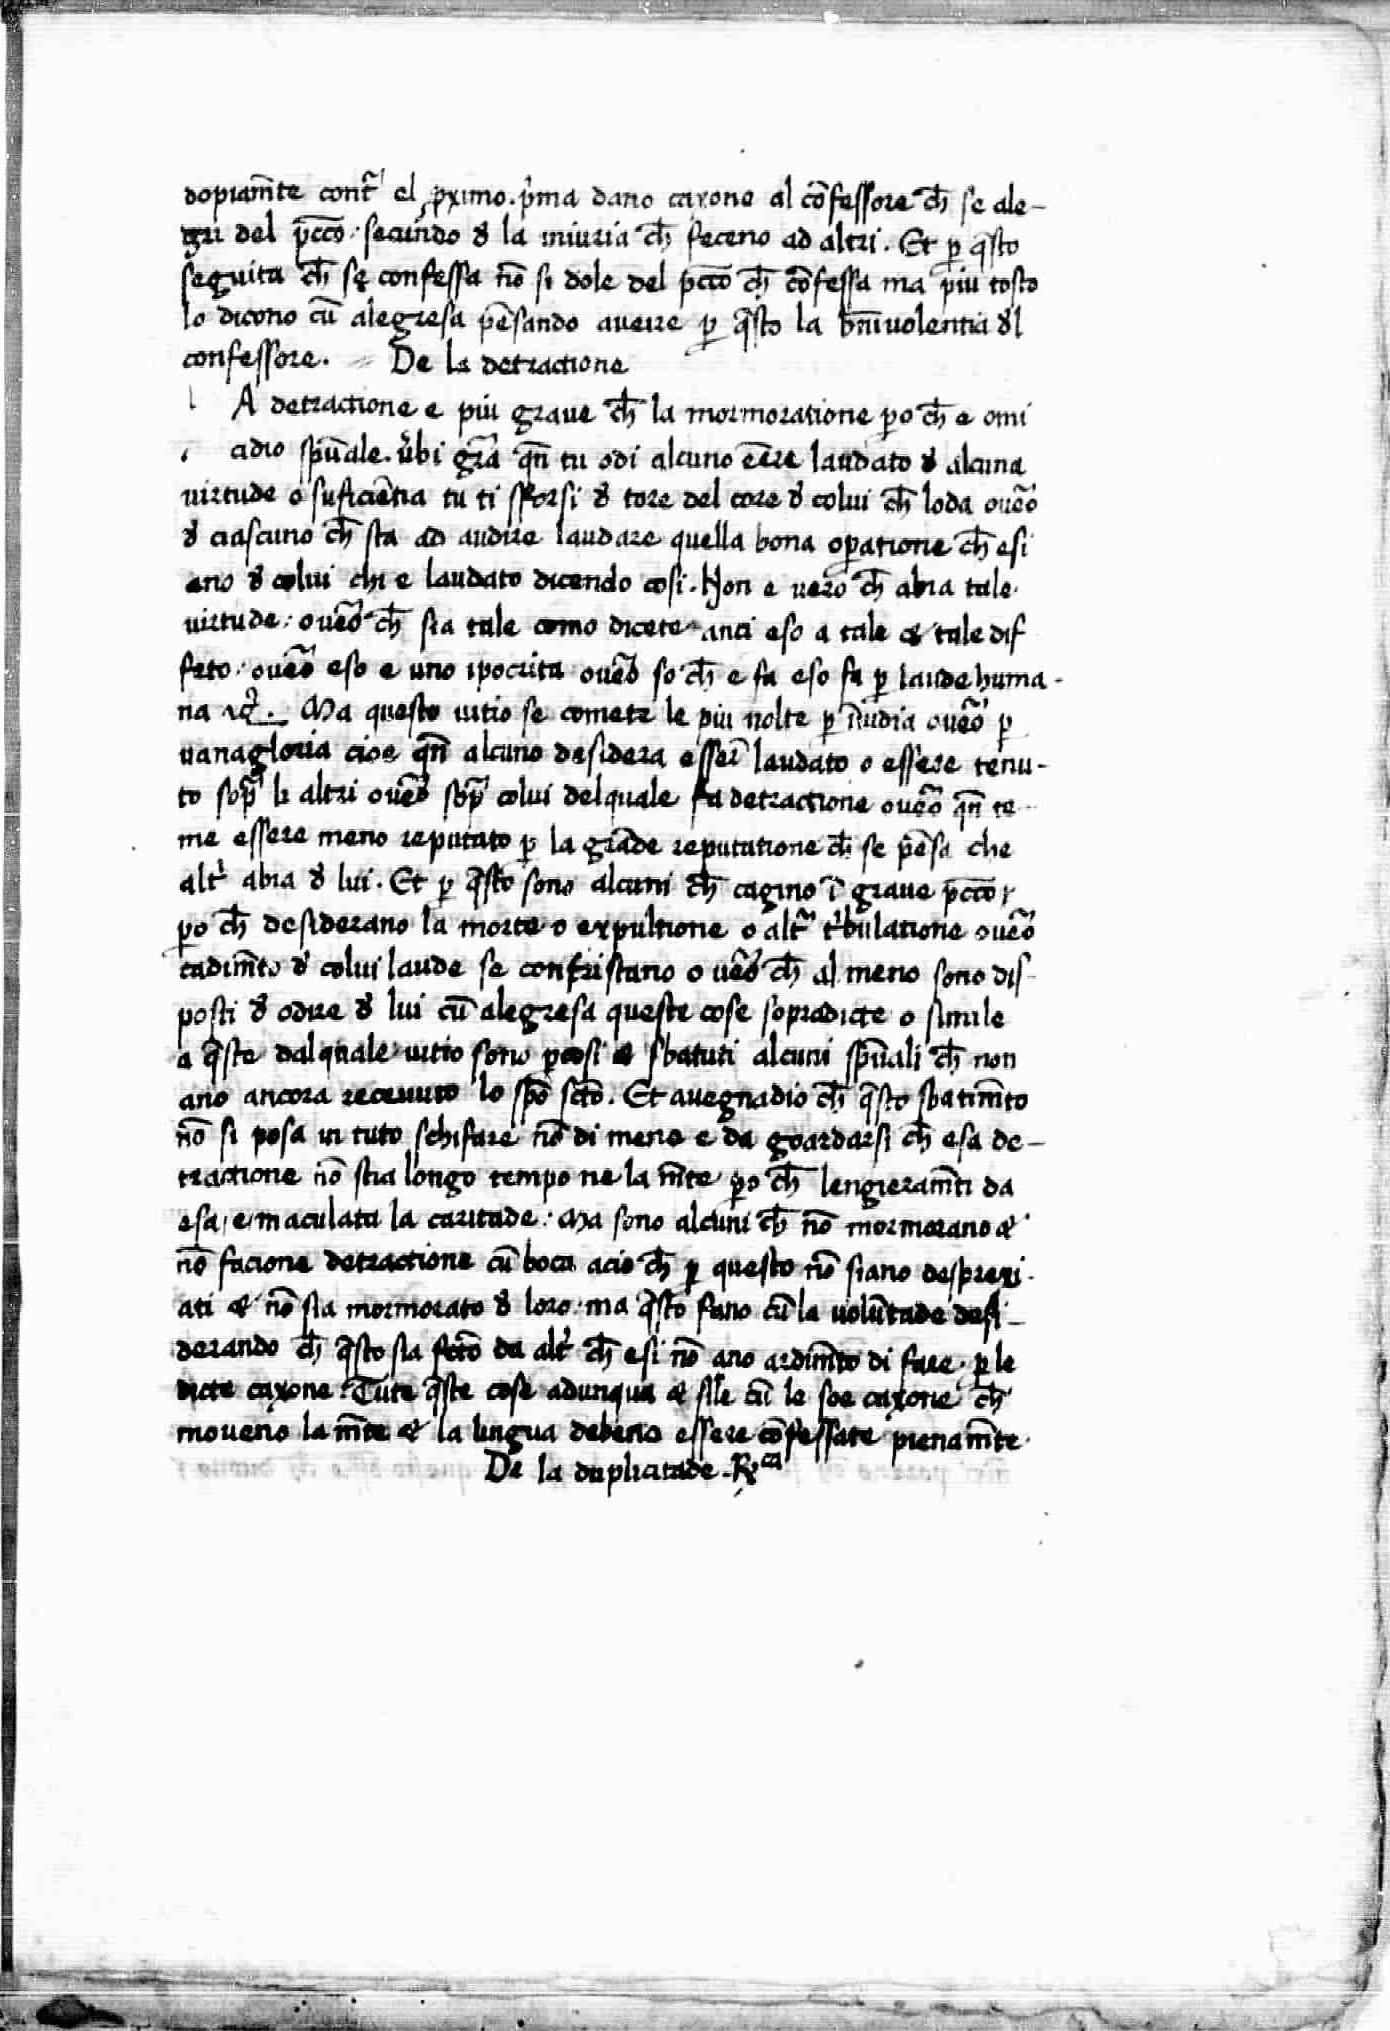 dopiam̄te cont̃ el ꝓximo. p̃ma dano caxone al cōfessore ch̄ se ale-
gri del pcc̄o. secundo đ la iniuria ch̄ feceno ad altri. Et ꝑ q̄sto
seguita ch̄ se confessa nō si dole del pcc̄o ch̄ cōfessa ma piu tosto
lo dicono cū alegresa pēsando aueire ꝑ q̄sto la bn̄iuolentia đl
confessore. De la detractione
l A detractione e piu graue ch̄ la mormoratione ꝑo ch̄ e omi
cidio spūale. v̓bi gr̄a qn̄ tu odi alcuno eēre laudato đ alcuna
virtude o suficiētia tu ti sforsi đ tore del core đ colui ch̄ loda oueõ
đ ciascuno ch̄ sta ad audire laudare quella bona oꝑatione ch̄ esi
ano đ colui chi e laudato dicendo cosi. Non e uero ch̄ abia tale
uirtude. oueõ ch̄ sia tale como dicete anci eso a tale & tale dif
feto. oueõ eso e uno ipocrita oueõ so ch̄ e fa eso fa ꝑ laude huma-
na &c̃. Ma questo uitio se comete le piu uolte ꝑ īuidia oueõ ꝑ
uanagloria cioe qn̄ alcuno desidera esser̄ laudato o essere tenu-
to sop̃ li altri oueõ sop̃ colui delquale fa detractione oueõ qn̄ te-
me essere meno reputato ꝑ la grāde reputatione ch̄ se pēsa che
alt̓ abia đ lui. Et ꝑ q̄sto sono alcuni ch̄ cagino ī graue pcc̄o
ꝑo ch̄ desiderano la morte o expulsione o alt̃ t̓bulatione oueõ
cadim̄to đ colui laude se contristano o ueõ ch̄ al meno sono dis-
posti đ odire đ lui cū alegresa queste cose sopradicte o simile
a q̄ste dalquale uitio sono ꝑcosi & sbatuti alcuni spūali ch̄ non
ano ancora receuuto lo spō sctō. Et auegnadio ch̄ q̄sto sbatim̄to
nō si posa in tuto schifare nō di meno e da guardarsi ch̄ esa de-
tractione nō stia longo tempo ne la m̄te ꝑo ch̄ lengieram̄ti da
esa e maculata la caritade. Ma sono alcuni ch̄ nō mormorano &
nō faciono detractione cū boca acio ch̄ ꝑ questo nō siano desprexi-
ati & nō sia mormorato đ loro. ma q̄sto fano cū la volūtade desi-
derando ch̄ q̄sto sia fctō da alt̓ ch̄ esi nō ano ardim̄to di fare. ꝑ le
dicte caxone. Tute q̄ste cose adunqua & sīle cū le soe caxone ch̄
moueno la m̄te & la lingua debeno essere cōfessate pienam̄te.
De la duplicitade. Rᶜᵃ